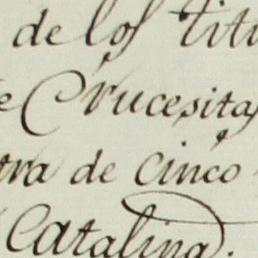 de los titu
e Crucesitas
tra de cinco
Catalina.